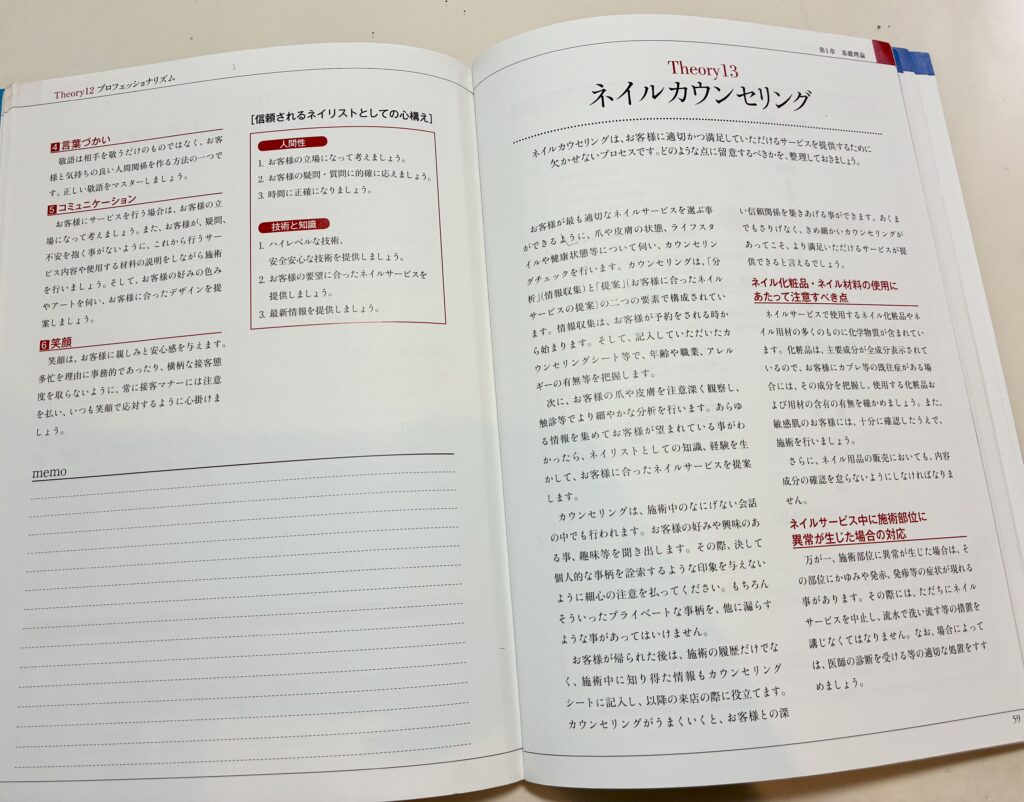 Theory12 プロフェッショナリズム
4 言葉づかい
敬語は相手を敬うだけのものではなく、お客
様と気持ちの良い人間関係を作る方法の一つで
す。正しい敬語をマスターしましょう。
5 コミュニケーション
お客様にサービスを行う場合は、お客様の立
場になって考えましょう。また、お客様が、疑問、
不安を抱く事がないように、これから行うサー
ビス内容や使用する材料の説明をしながら施術
を行いましょう。そして、お客様の好みの色み
やアートを伺い、お客様に合ったデザインを提
案しましょう。
6 笑顔
笑顔は、お客様に親しみと安心感を与えます。
多忙を理由に事務的であったり、横柄な接客態
度を取らないように、常に接客マナーには注意
を払い、いつも笑顔で応対するように心掛けま
しょう。
[信頼されるネイリストとしての心構え]
人間性
1. お客様の立場になって考えましょう。
2. お客様の疑問・質問に的確に応えましょう。
3. 時間に正確になりましょう。
技術と知識
1. ハイレベルな技術、
安全安心な技術を提供しましょう。
2. お客様の要望に合ったネイルサービスを
提供しましょう。
3. 最新情報を提供しましょう。
memo
第1章 基礎理論
Theory13
ネイルカウンセリング
ネイルカウンセリングは、お客様に適切かつ満足していただけるサービスを提供するために
欠かせないプロセスです。どのような点に留意するべきかを、整理しておきましょう。
お客様が最も適切なネイルサービスを選ぶ事
ができるように、爪や皮膚の状態、ライフスタ
イルや健康状態等について伺い、カウンセリン
グチェックを行います。カウンセリングは、「分
析」(情報収集)と「提案」(お客様に合ったネイル
サービスの提案)の二つの要素で構成されてい
ます。情報収集は、お客様が予約をされる時か
ら始まります。そして、記入していただいたカ
ウンセリングシート等で、年齢や職業、アレル
ギーの有無等を把握します。
次に、お客様の爪や皮膚を注意深く観察し、
触診等でより細やかな分析を行います。あらゆ
る情報を集めてお客様が望まれている事がわ
かったら、ネイリストとしての知識、経験を生
かして、お客様に合ったネイルサービスを提案
します。
カウンセリングは、施術中のなにげない会話
の中でも行われます。お客様の好みや興味のあ
る事、趣味等を聞き出します。その際、決して
個人的な事柄を詮索するような印象を与えない
ように細心の注意を払ってください。もちろん
そういったプライベートな事柄を、他に漏らす
ような事があってはいけません。
お客様が帰られた後は、施術の履歴だけでな
く、施術中に知り得た情報もカウンセリング
シートに記入し、以降の来店の際に役立てます。
カウンセリングがうまくいくと、お客様との深
い信頼関係を築きあげる事ができます。あくま
でもさりげなく、きめ細かいカウンセリングが
あってこそ、より満足いただけるサービスが提
供できると言えるでしょう。
ネイル化粧品・ネイル材料の使用に
あたって注意すべき点
ネイルサービスで使用するネイル化粧品やネ
イル用材の多くのものに化学物質が含まれてい
ます。化粧品は、主要成分が全成分表示されて
いるので、お客様にカブレ等の既往症がある場
合には、その成分を把握し、使用する化粧品お
よび用材の含有の有無を確かめましょう。また、
敏感肌のお客様には、十分に確認したうえで、
施術を行いましょう。
さらに、ネイル用品の販売においても、内容
成分の確認を怠らないようにしなければなりま
せん。
ネイルサービス中に施術部位に
異常が生じた場合の対応
万が一、施術部位に異常が生じた場合は、そ
の部位にかゆみや発赤、発疹等の症状が現れる
事があります。その際には、ただちにネイル
サービスを中止し、流水で洗い流す等の措置を
講じなくてはなりません。なお、場合によって
は、医師の診断を受ける等の適切な処置をすす
めましょう。
59